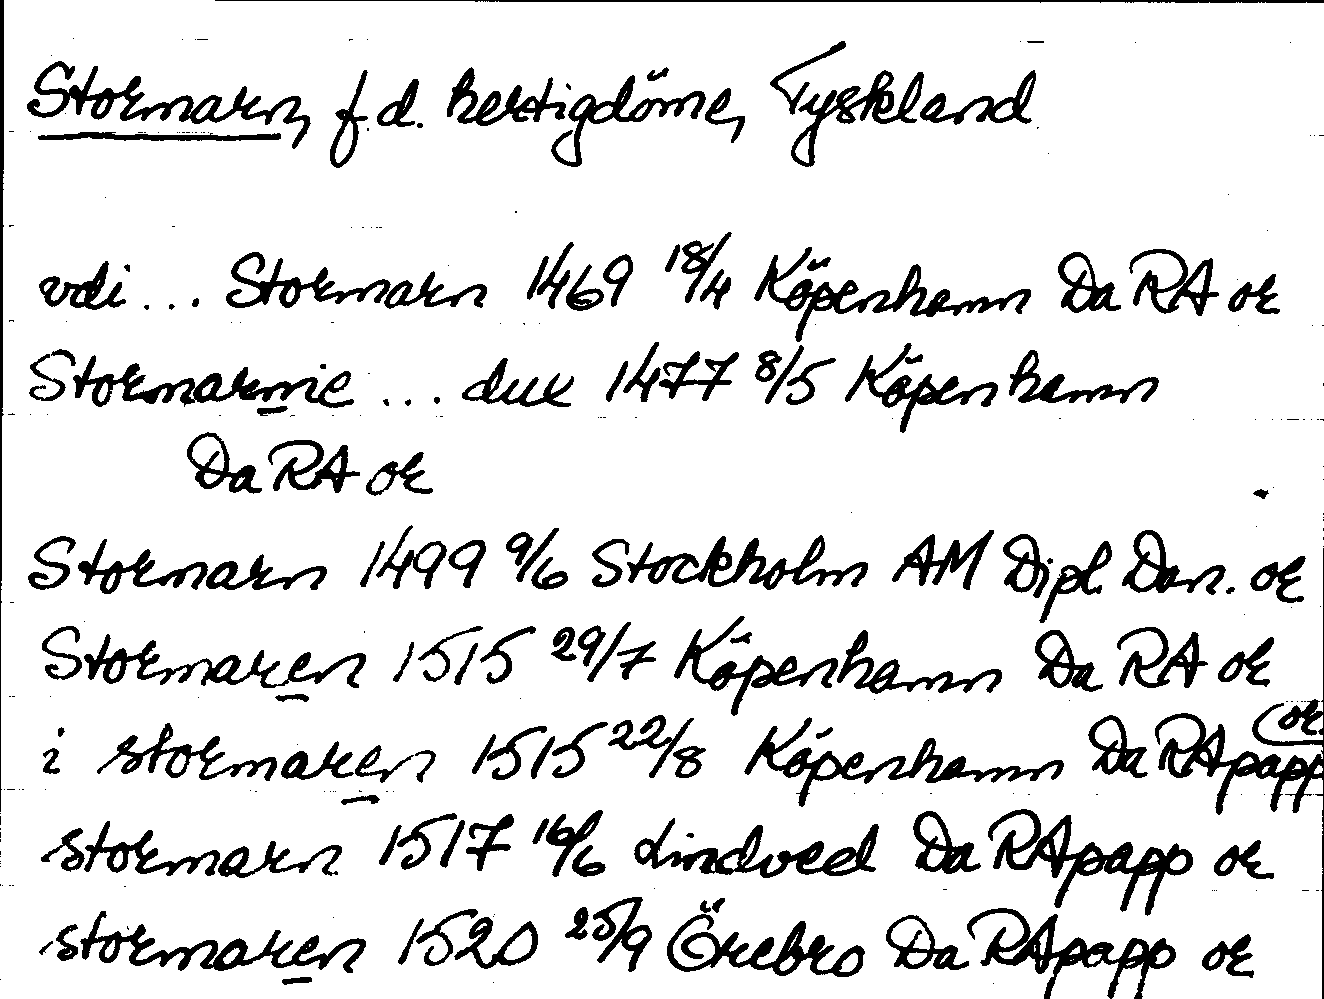 Stormarn, f.d. hertigdöme, Tyskland
vdi ... Stormarn 1469 18/4 Köpenhamn Da RA or
Stormarnie ... dux 1477 8/5 Köpenhamn
Da RA or
Stormarn 1499 9/6 Stockholm AM Dipl. Dan. or
Stormaren 1515 29/7 Köpenhamn Da RA or
i stormaren 1515 22/8 Köpenhamn Da RApapp or
stormarn 1517 16/6 Lindved Da RApapp or
stormaren 1520 25/9 Örebro Da RApapp or